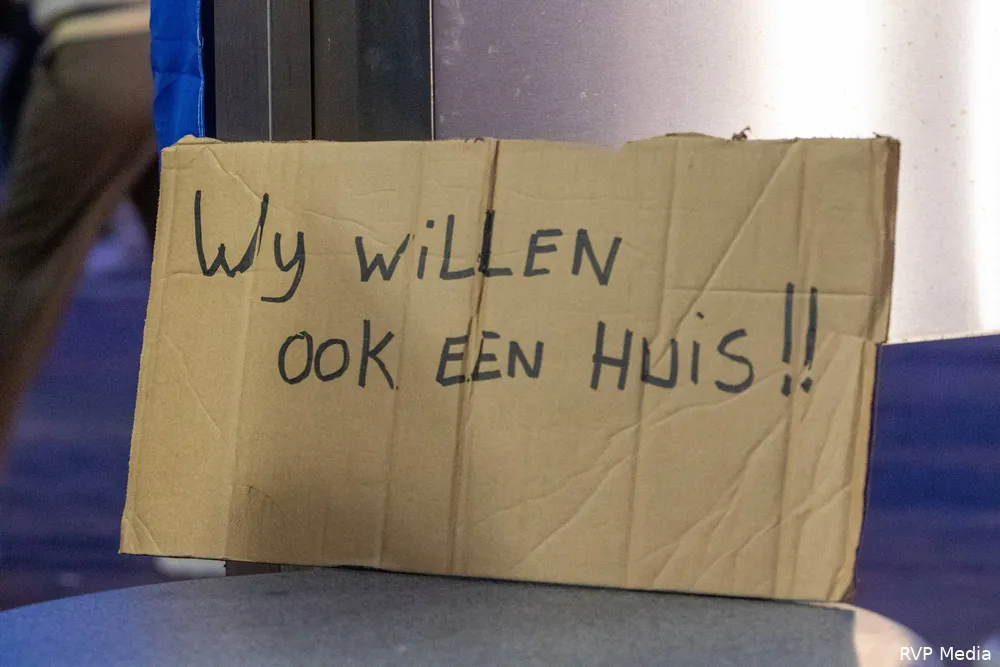 Wy WiLLEN
OOK EEN HUiS!!
RVP Media